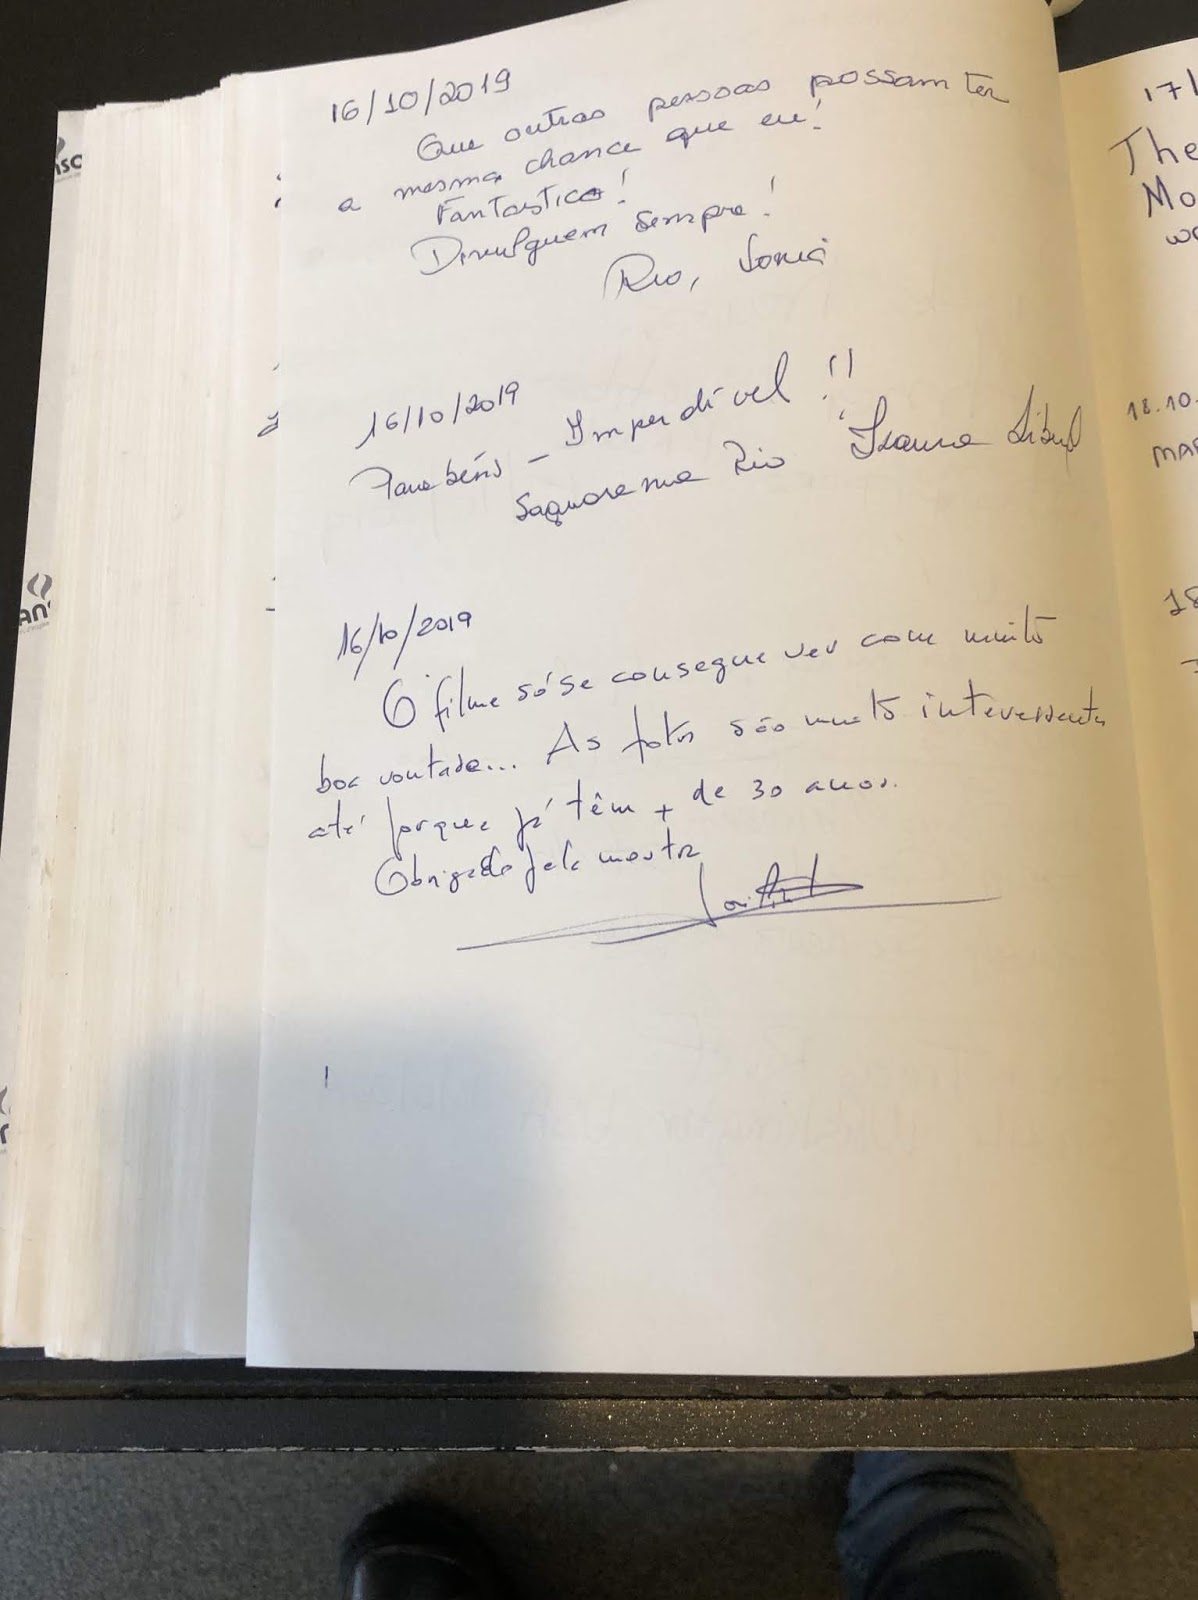 16/10/2019
Que outras pessoas possam ter
a mesma chance que eu!
Fantastico!
Divulguem sempre!
Rio, Sonia
16/10/2019
Parabéns - Imperdível!!
Saquarema Rio Isaura
16/10/2019
O filme só se consegue ver com muito
boa vontade... As fotos são muito interessantes
até porque já têm + de 30 anos.
Obrigado pela mostra
17/
The
Mo
18.10.
MAR
18